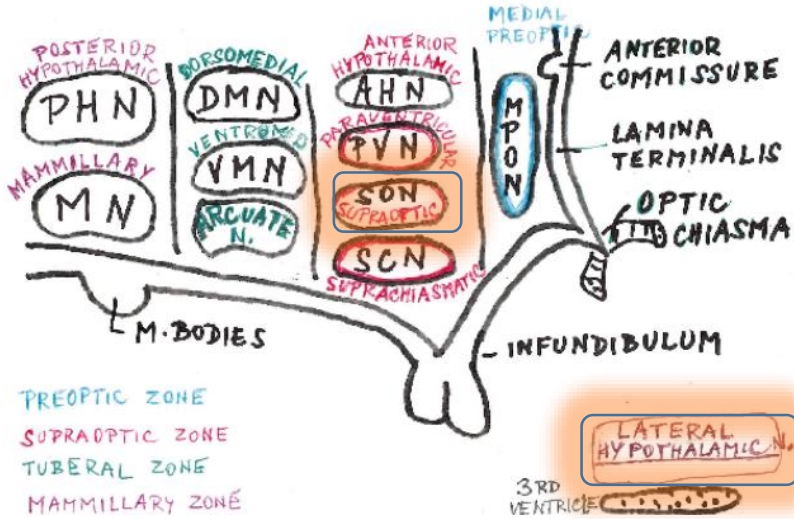 POSTERIOR
HYPOTHALAMIC
PHN
MAMMILLARY
MN
DORSOMEDIAL
DMN
VENTROMED
VMN
ARCUATE
N.
ANTERIOR
HYPOTHALAMIC
AHN
PARAVENTRICULAR
PVN
SON
SUPRAOPTIC
SCN
SUPRACHIASMATIC
MEDIAL
PREOPTIC
MPON
ANTERIOR
COMMISSURE
LAMINA
TERMINALIS
OPTIC
CHIASMA
M. BODIES
INFUNDIBULUM
PREOPTIC ZONE
SUPRAOPTIC ZONE
TUBERAL ZONE
MAMMILLARY ZONE
LATERAL
HYPOTHALAMIC N.
3RD
VENTRICLE